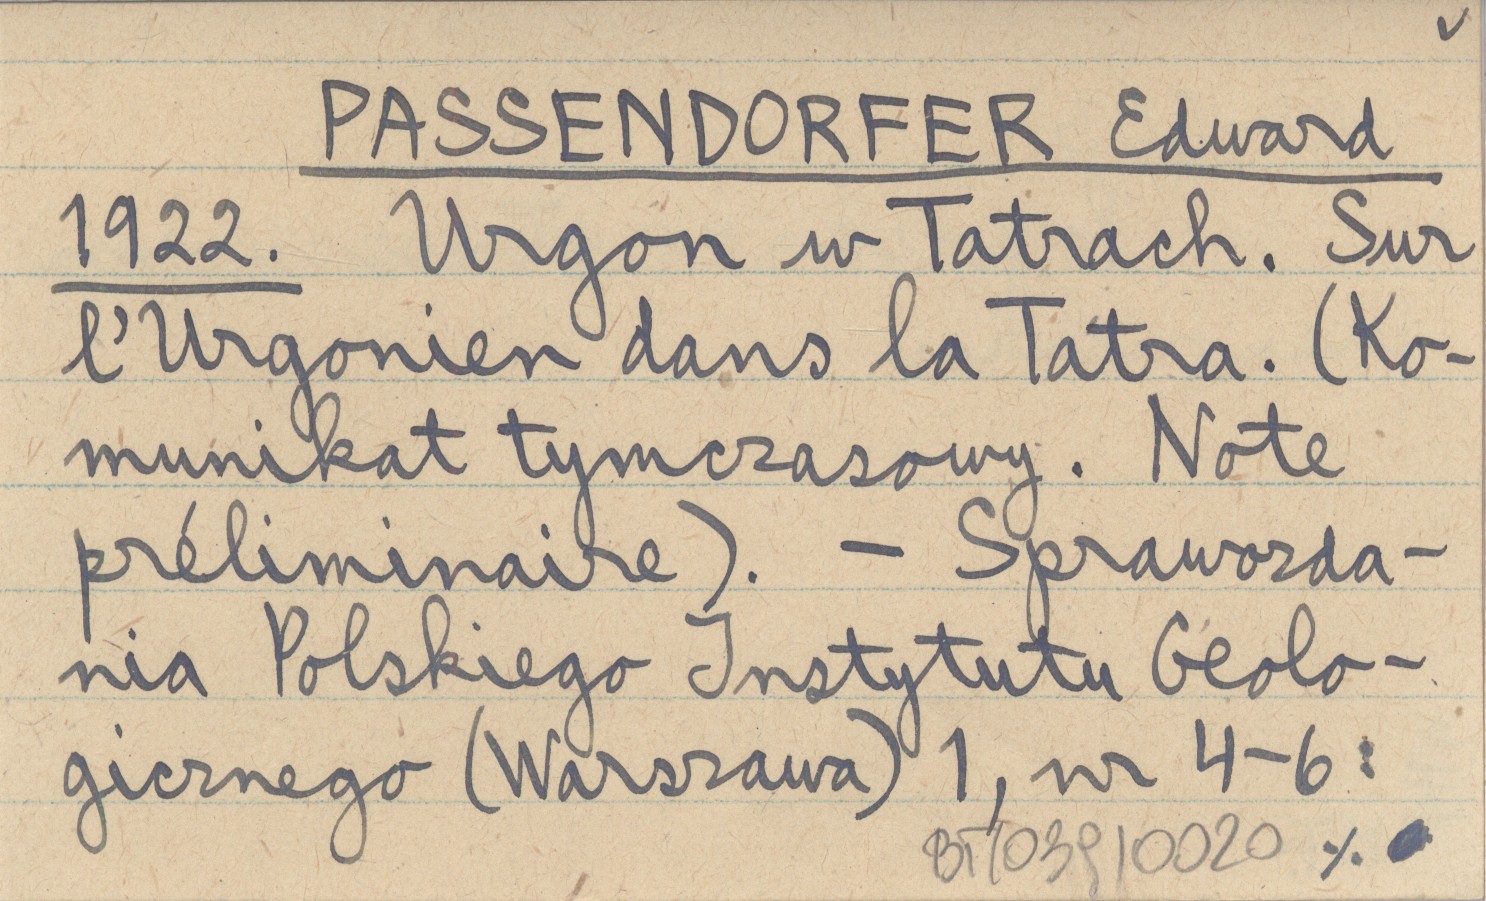 ✓
PASSENDORFER Edward
1922. Urgon w Tatrach. Sur
l'Urgonien dans la Tatra. (Ko-
munikat tymczasowy. Note
préliminaire). — Sprawozda-
nia Polskiego Instytutu Geolo-
gicznego (Warszawa) 1, nr 4-6:
BT/039/0020 ./.